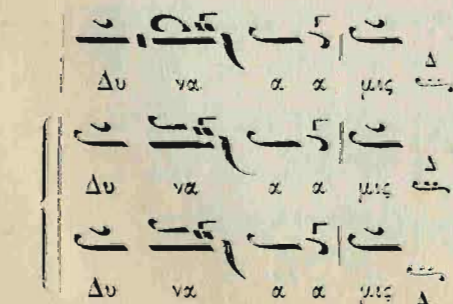 Δυ να α α μις Δ
Δυ να α α μις Δ
Δυ να α α μις Δ